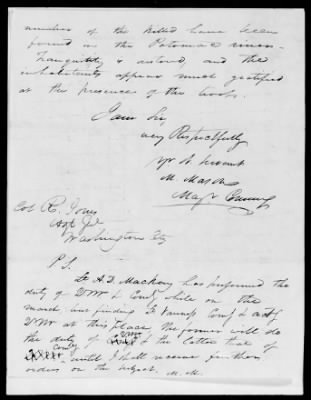 numbers of the killed have been
found in the Potomac river.
Tranquility is restored, and the
inhabitants appear much gratified
at the presence of the troops.
I am Sir,
very Respectfully
yr O. Servant
M. Mason
Majr Comg
Col R. Jones
Adjt Gl
Washington City
P.S.
Lt A. D. Mackay has performed the
duty of & Comy while on the
march, and finding Lt Comy & actg
at this place, the former will do
the duty of & the latter that of
Comsy
until I shall receive further
orders on the subject. M. M.